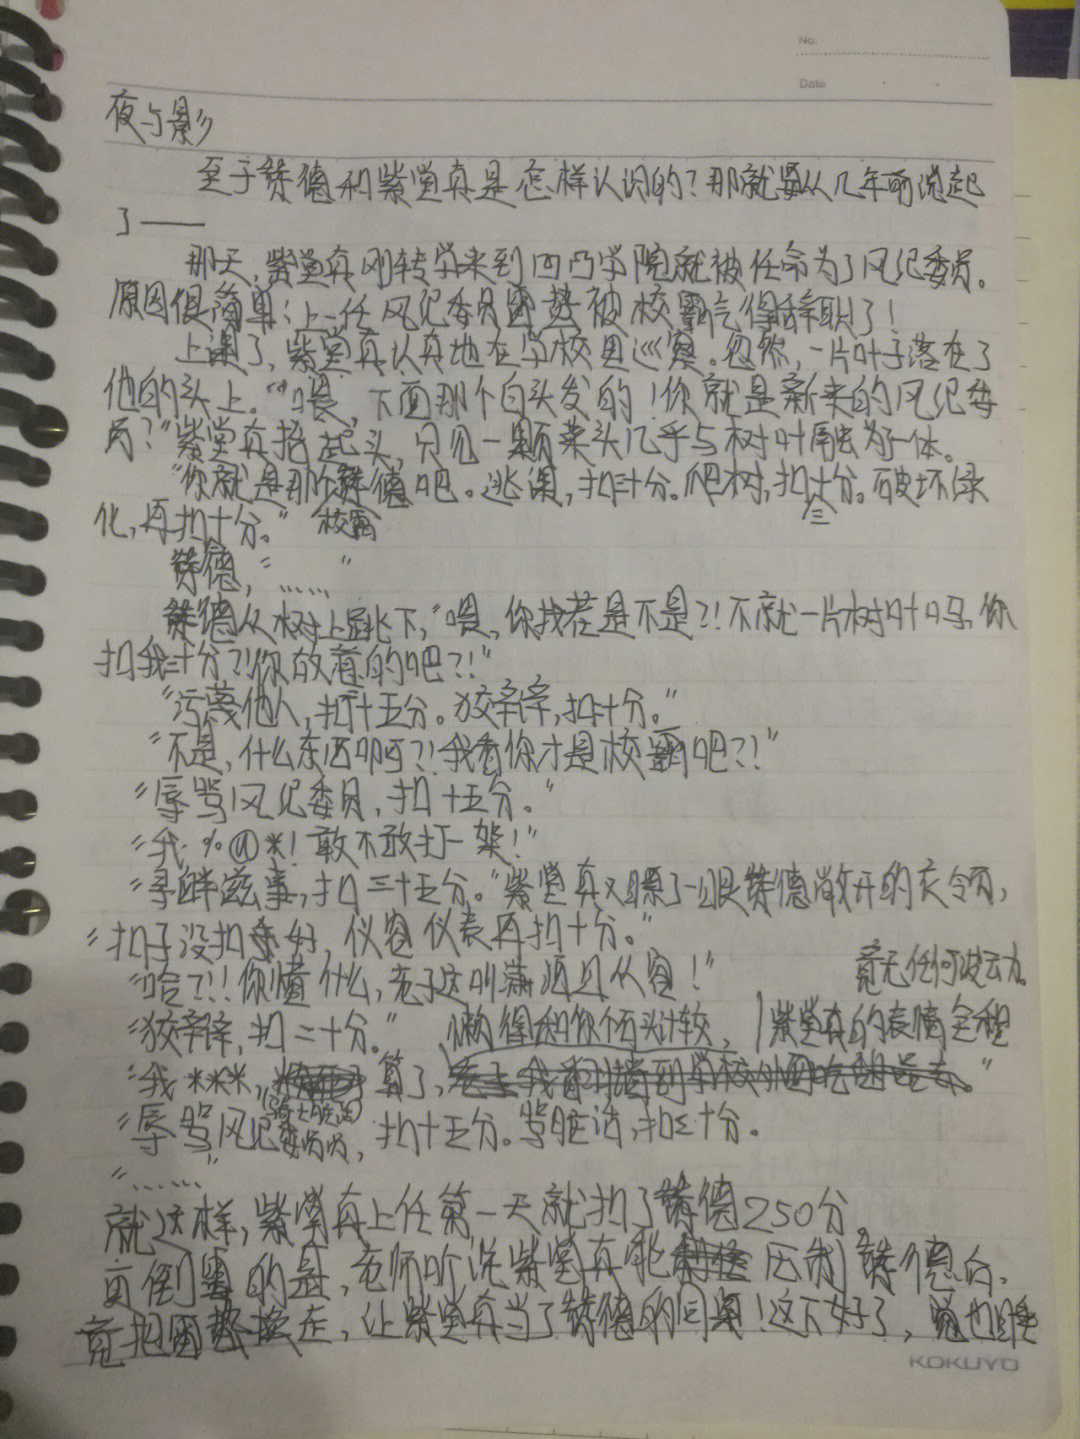 No.
Date
夜与影
至于赞德和紫堂真是怎样认识的？那就要从几年前说起
了——
那天，紫堂真刚转学来到凹凸学院就被任命为了风纪委员。
原因很简单：上一任风纪委员雷蛰被校霸气得辞职了！
上课了，紫堂真认真地在学校里巡察。忽然，一片叶子落在了
他的头上。“喂，下面那个白头发的！你就是新来的风纪委
员？”紫堂真抬起头，只见一颗菜头几乎与树叶融为一体。
“你就是那个赞德吧。逃课，扣三十分。爬树，扣十分。破坏绿
三
化，再扣十分。”
校霸
赞德，“……”
赞德从树上跳下，“喂，你找茬是不是？！不就一片树叶吗，你
扣我三十分？！你故意的吧？！”
“污蔑他人，扣十五分。狡辩，扣十分。”
“不是，什么东西啊？！我看你才是校霸吧？！”
“辱骂风纪委员，扣十五分。”
“我·%@*！敢不敢打一架！”
“寻衅滋事，扣三十五分。”紫堂真又瞟了一眼赞德敞开的衣领，
“扣子没扣好，仪容仪表再扣十分。”
“哈？！！你懂什么，老子这叫潇洒且从容！”
竟无任何波动。
“狡辩，扣二十分。”
懒得和你个石头计较，
紫堂真的表情全程
“我***，算了，我翻墙到学校外面吃饭是去。”
“辱骂风纪委员，扣十五分。骂脏话，扣三十分。
“……”
就这样，紫堂真上任第一天就扣了赞德250分。
更倒霉的是，老师听说紫堂真能压制赞德后，
竟把雷蛰换走，让紫堂真当了赞德的同桌！这下好了，觉也睡
KOKUYO